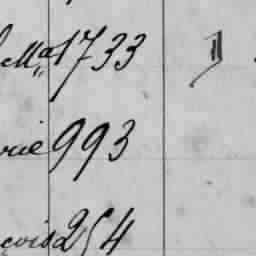 Ma 1733
rie 993
çois 254